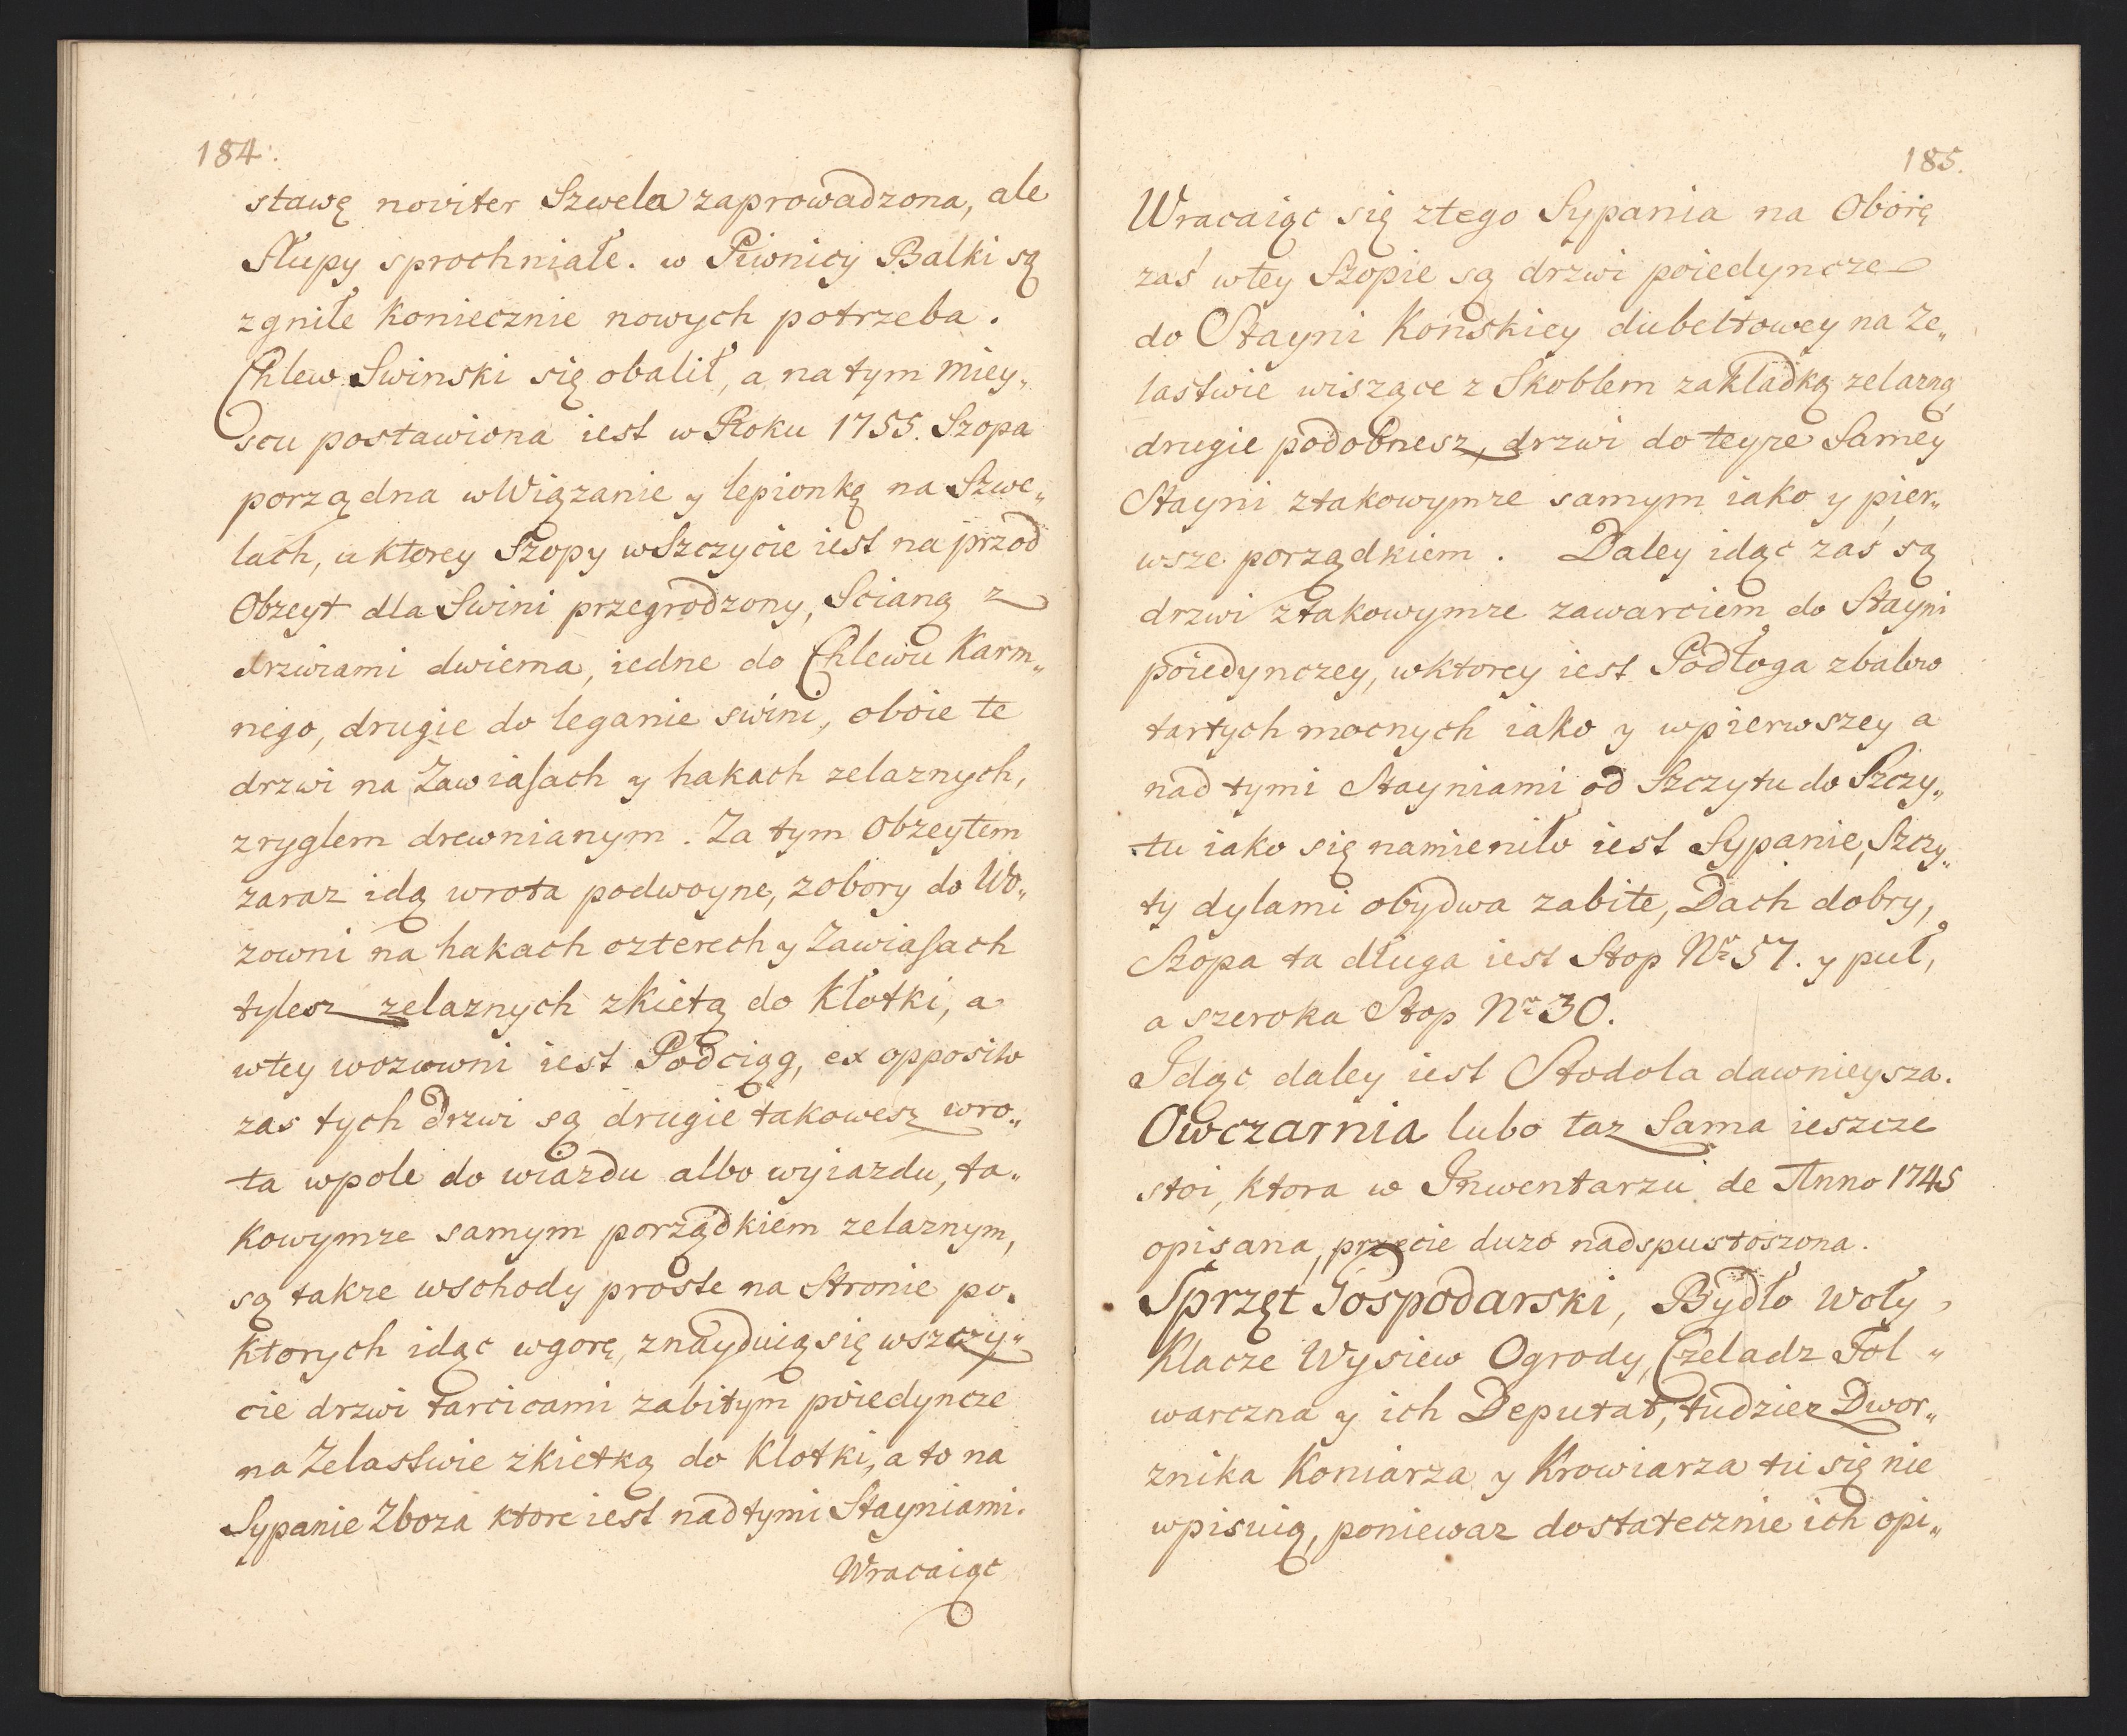 184.
stawę noviter Szwela zaprowadzona, ale
Słupy sprochniałe. w Piwnicy Balki są
zgniłe koniecznie nowych potrzeba.
Chlew Swinski się obalił, a na tym miey„
scu postawiona iest w Roku 1755. Szopa
porządna w Wiązanie y lepionkę na Szwe„
lach, u ktorey Szopy w Szczycie iest na przod
Obzeyt dla Swini przegrodzony, Scianą z
drzwiami dwiema, iedne do Chlewu Karm„
nego, drugie do leganie swini, oboie te
drzwi na Zawiasach y hakach zelaznych,
z ryglem drewnianym. Za tym Obzeytem
zaraz idą wrota podwoyne, z obory do Wo„
zowni na hakach czterech y Zawiasach
tylesz zelaznych z kietą do Kłotki, a
w tey wozowni iest Podciąg, ex opposito
zas tych drzwi są drugie takowesz wro„
ta w pole do wiazdu albo wyiazdu, ta„
kowymze samym porządkiem zelaznym,
są takze wschody proste na Stronie po
ktorych idąc w gorę, znayduią się w szczy„
cie drzwi tarcicami zabitym poiedyncze
na Zelastwie z kietką do Klotki, a to na
Sypanie Zboza ktore iest nad tymi Stayniami.
Wracaiąc
185.
Wracaiąc się z tego Sypania na Oborę
zaś w tey Szopie są drzwi poiedyncze
do Stayni Końskiey dubeltowey na Ze„
lastwie wiszące z Skoblem zakładką zelazną,
drugie podobnesz, drzwi do teyze Samey
Stayni z takowymze samym iako y pier„
wsze porządkiem. Daley idąc zaś są
drzwi z takowymze zawarciem do Stayni
poiedynczey, w ktorey iest Podłoga z balow
tartych mocnych iako y w pierwszey a
nad tymi Stayniami od Szczytu do Szczy„
tu iako się namieniło iest Sypanie, Szczy„
ty dylami obydwa zabite, Dach dobry,
Szopa ta długa iest Stop Nr 57. y puł,
a szeroka Stop Nr 30.
Idąc daley iest Stodola dawnieysza.
Owczarnia lubo taz Sama ieszcze
stoi, ktora w Inwentarzu de Anno 1745
opisana, przecie duzo nadspustoszona.
Sprzęt Gospodarski, Bydło woły,
Klacze Wysiew Ogrody, Czeladz Fol„
warczna y ich Deputat, tudziez Dwor„
znika Koniarza y Krowiarza tu się nie
wpisuią, poniewaz dostatecznie ich opi„